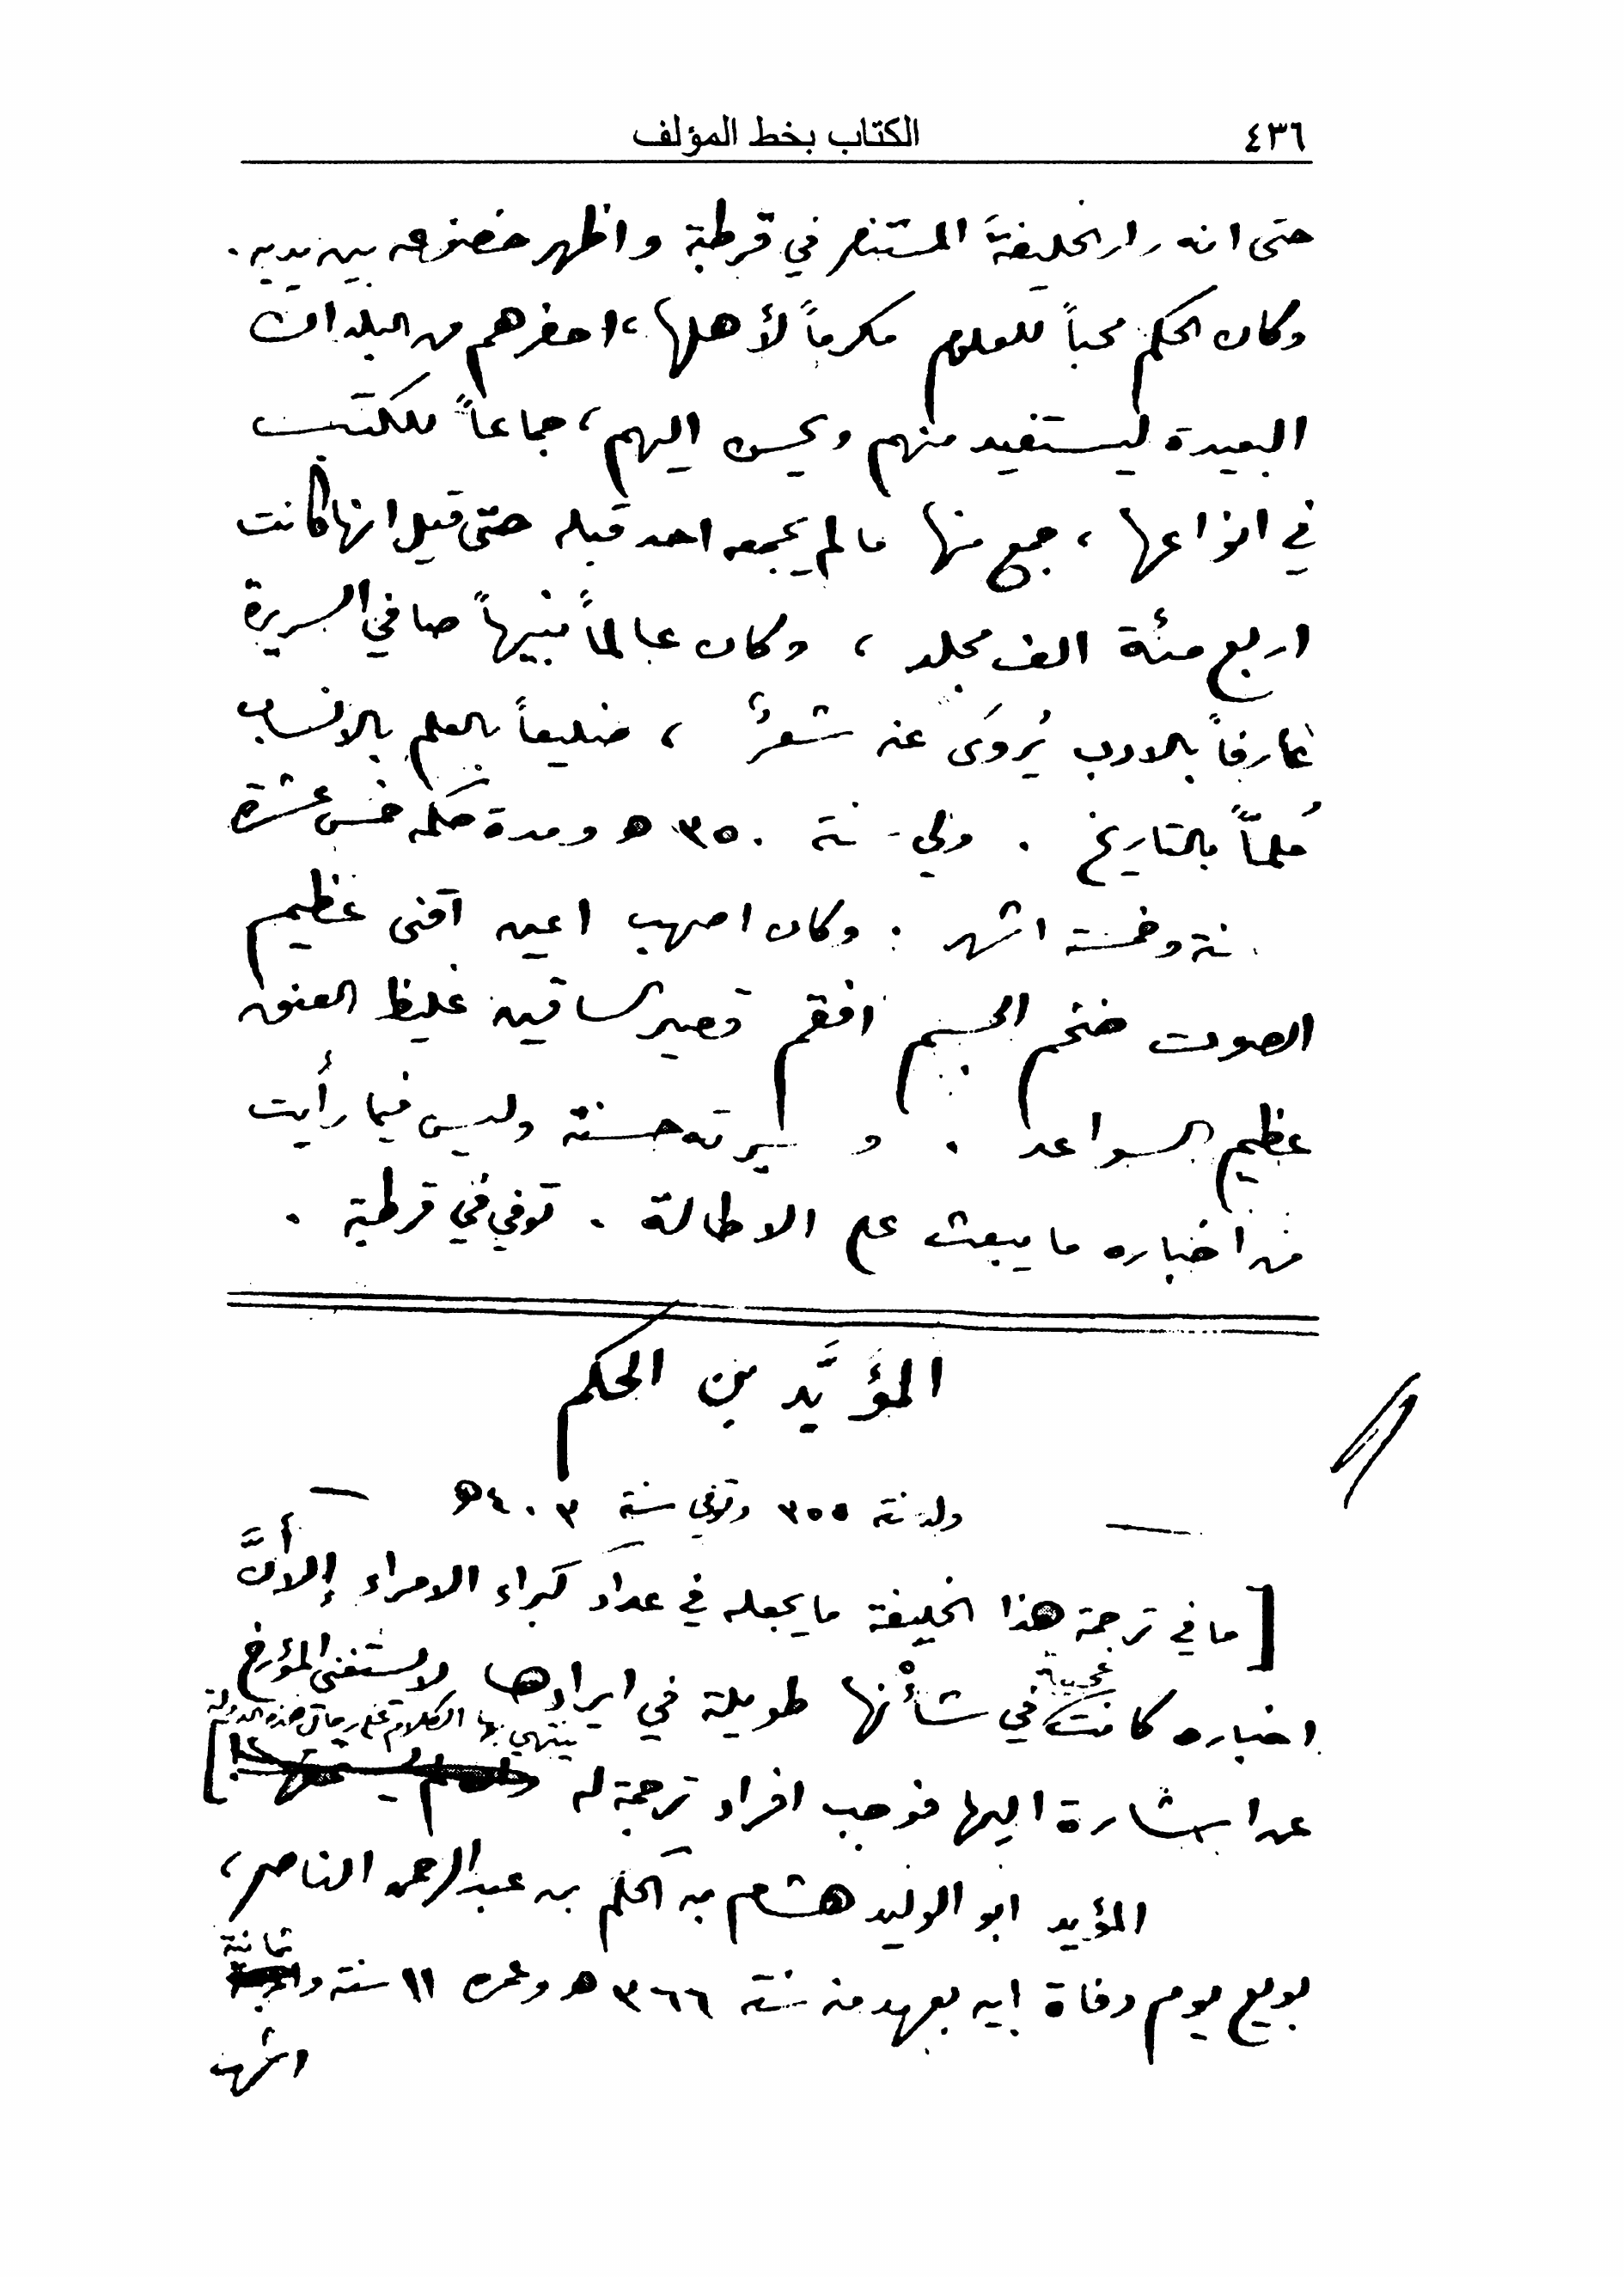 ٤٣٦
الكتاب بخط المؤلف
حتى انه زار الخليفة المستنصر في قرطبة واظهر خضوعه بين يديه .
وكان الحكم محباً للعلوم مكرماً لأهلها ، احضرهم من البلدان
البعيدة ليستفيد منهم ويحسن اليهم ، جماعاً للكتب
في انواعها ، جمع منها ما لم يجمعه احد قبله حتى قيل انها كانت
اربع مئة الف مجلد ، وكان عالماً نبيهاً صافي السريرة
عارفاً بالادب يُروَى عنه شعرٌ ، ضليعاً بالعلم بالانساب
مُلماً بالتاريخ . ولي سنة ٣٥٠ ه ومدة حكمه خمس عشرة
سنة وخمسة اشهر . وكان اصهب اعين اقنى عظيم
الصوت ضخم الجسم افقم قصير الساقين غليظ العنق
عظيم السواعد . و سيرته حسنة وليس فيما رأيت
من اخباره ما يبعث على الاطالة . توفي في قرطبة .
المؤيَّد بن الحكم
— ولد سنة ٣٥٥ وتوفي سنة ٤٠٣ ه —
[ ما في ترجمة هذا الخليفة ما يجعله في عداد كبراء الامراء إلا أنَّ
اخباره كانت عجيبة في شأنها طويلة في ايرادها لا يستغني المؤرخ
عن اشارة اليها فوجب افراد ترجمة له ينتهي بها الكلام على رجال هذه الدولة ]
المؤيد ابو الوليد هشام بن الحكم بن عبد الرحمن الناصر ،
بويع يوم وفاة ابيه بعهد منه سنة ٣٦٦ ه وعمره ١١ سنة وثمانية
اشهر